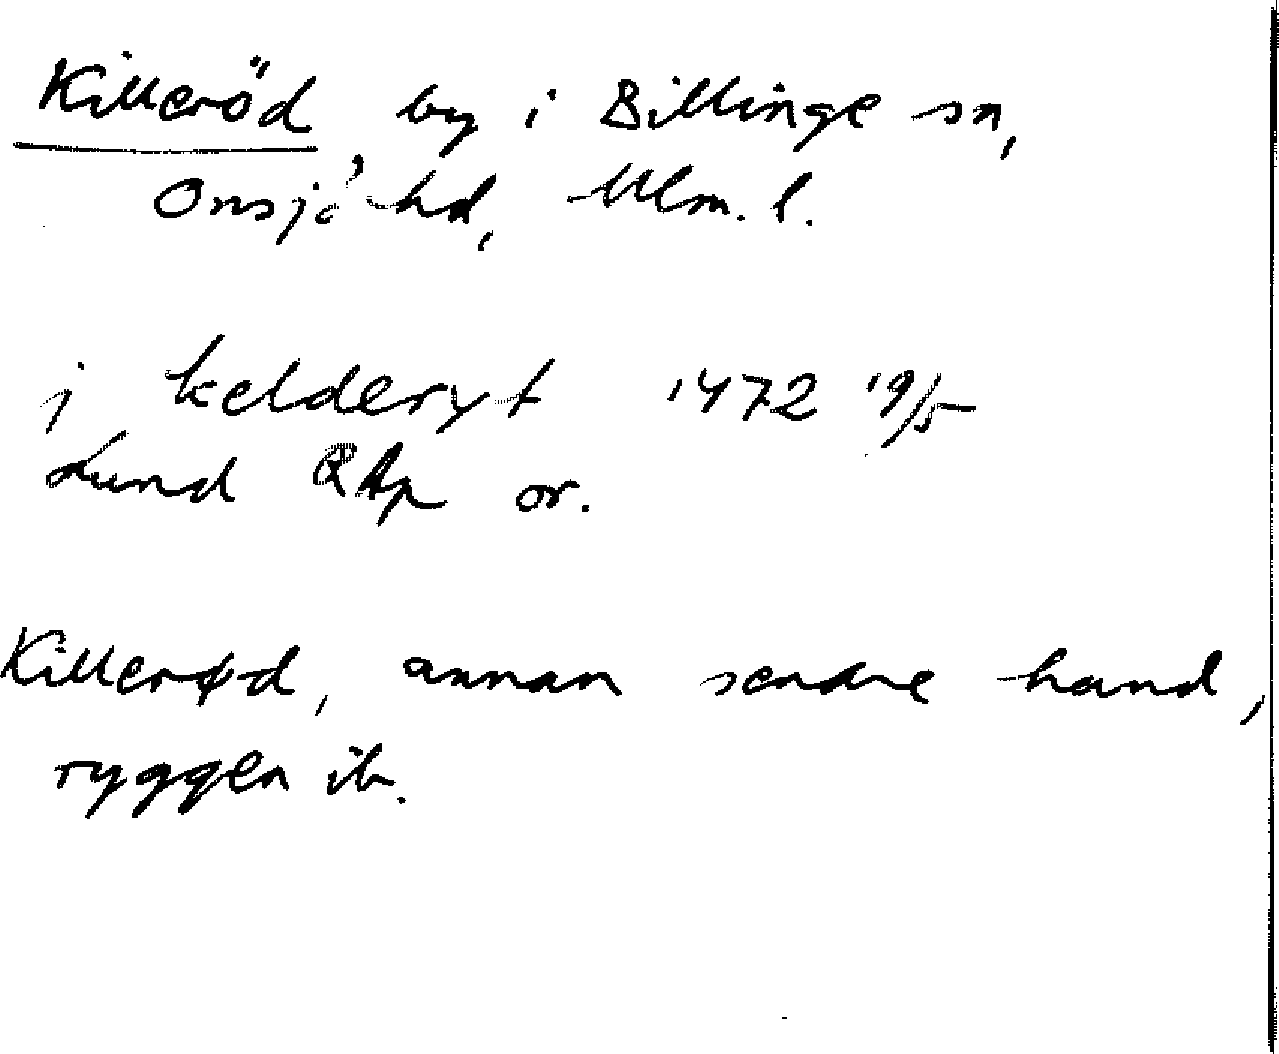 Killeröd, by i Billinge sn,
Onsjö hd, Mlm. l.
j kelderyt 1472 19/5
Lund RAp or.
Killerød, annan senare hand,
ryggen ib.